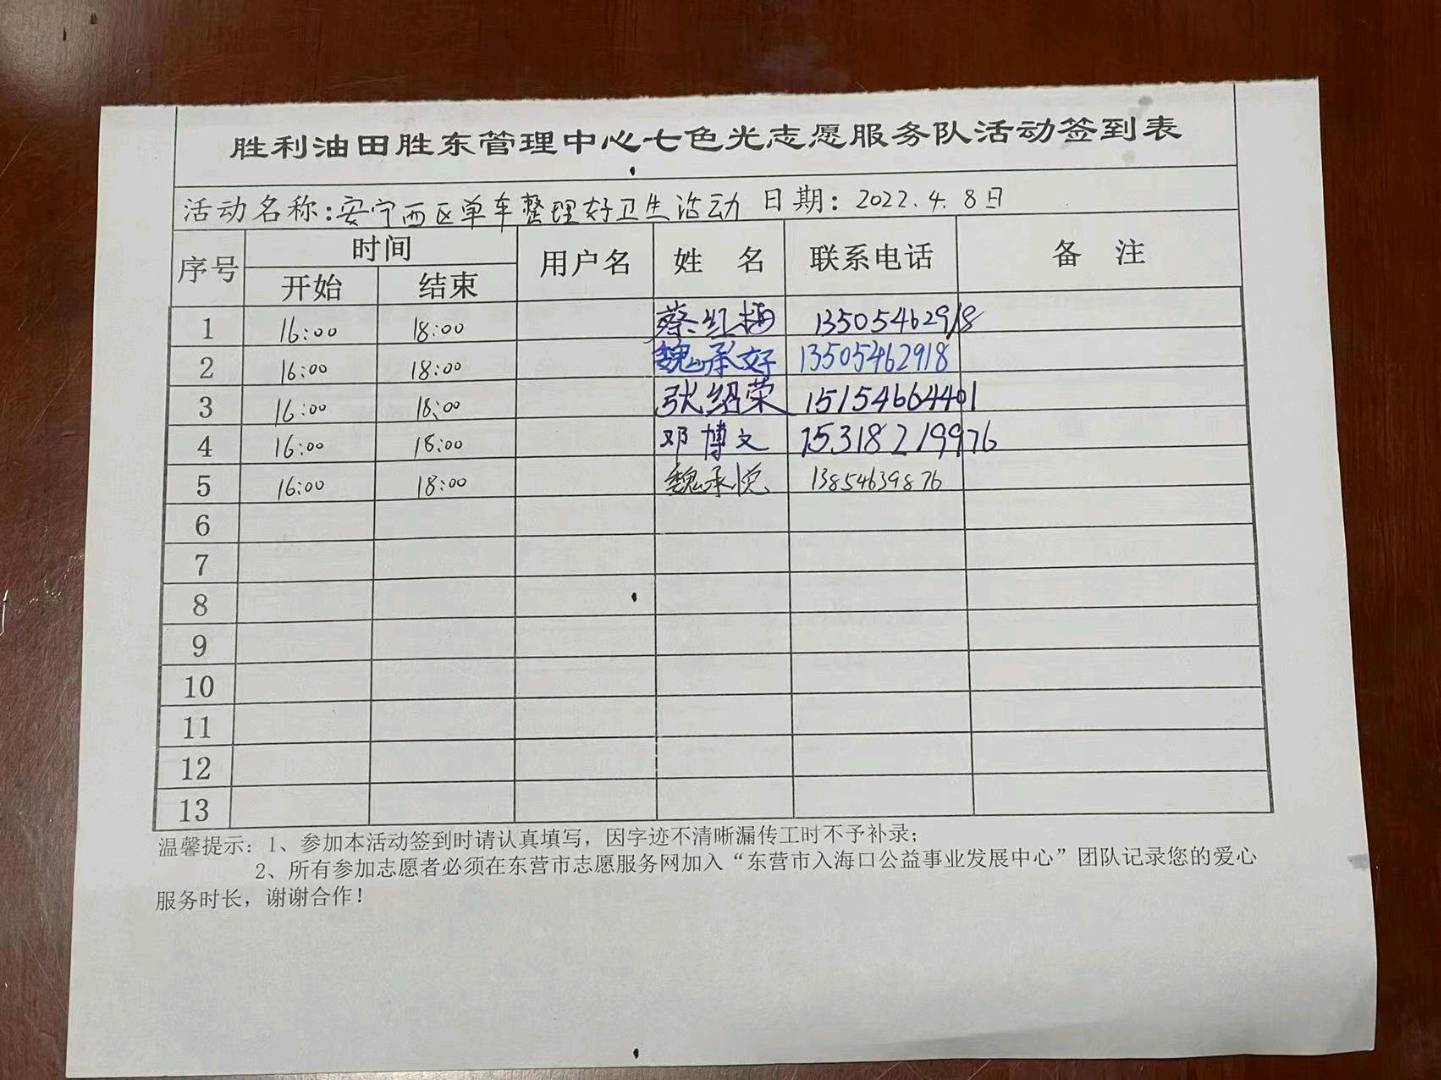 胜利油田胜东管理中心七色光志愿服务队活动签到表
活动名称:安宁西区单车整理好卫生活动 日期:2022.4.8日
序号 时间 用户名 姓名 联系电话 备注
开始 结束
1 16:00 18:00 蔡红梅 13505462918
2 16:00 18:00 魏承好 13505462918
3 16:00 18:00 张绍荣 15154664401
4 16:00 18:00 邓博文 15318219976
5 16:00 18:00 魏承悦 13854639876
6
7
8
9
10
11
12
13
温馨提示:1、参加本活动签到时请认真填写,因字迹不清晰漏传工时不予补录;
2、所有参加志愿者必须在东营市志愿服务网加入“东营市入海口公益事业发展中心”团队记录您的爱心
服务时长,谢谢合作!